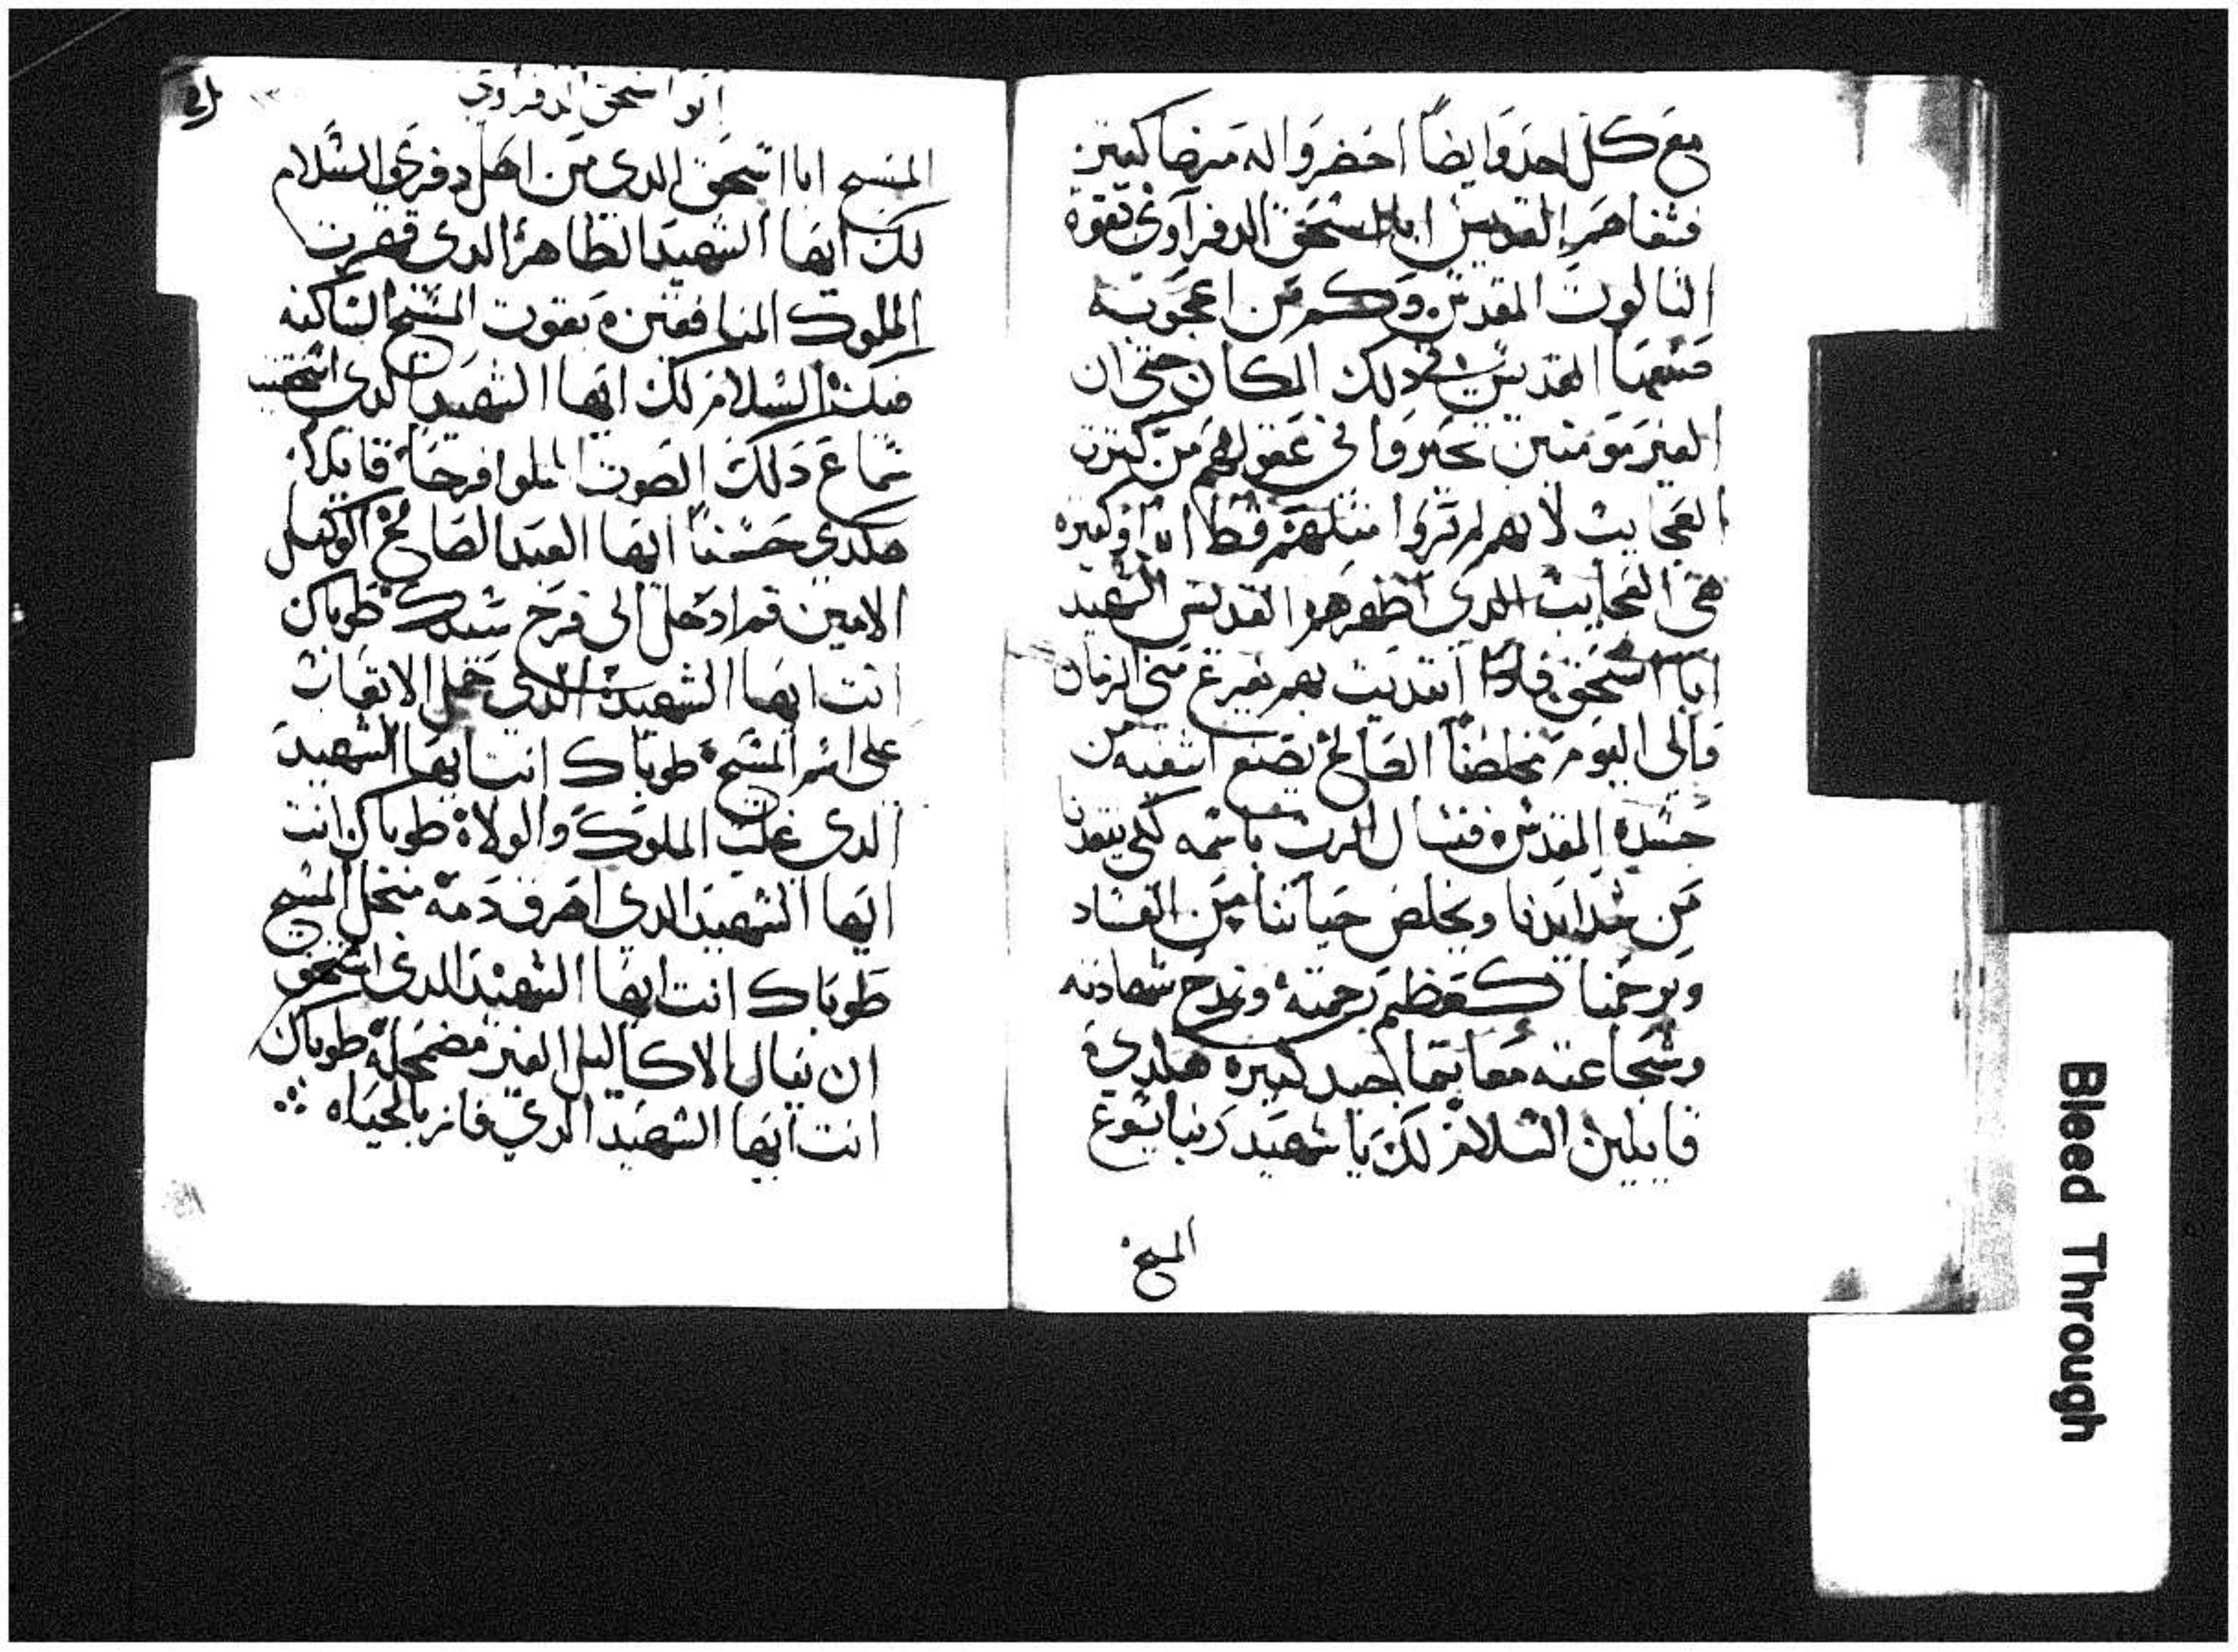 مع كل احد وايضا احضروا له مرضا كتير
فشفاهم القديس ابا اسحق الدفراوي بقوة
التالوت المقدس وكم من اعجوبه
صنعها القديس في دلك المكان حتي ان
الغير مومنين تحيروا في عقولهم من كترت
العجايب لانهم لم تروا متلهم قط
هي العجايب الدي اظهرهم القديس الشهيد
ابا اسحق فادا ابتديت بهم يفرغ مني الزمان
والي اليوم مخلصنا الصالح يصنع اشفيه من
جسده المقدس فنسال الرب باسمه لكي ينقدنا
من شدايدنا ويخلص حياتنا من الفساد
ويرحمنا كعظيم رحمته ونمدح شهادته
وشجاعته معا بتماجيد كتيره هكدي
قايلين السلام لك يا شهيد ربنا يسوع
المسيح
ابو اسحق الدفراوي
المسيح ابا اسحق الدي من اهل دفري السلام
لك ايها الشهيد الطاهر الدي قهرت
الملوك المنافقين بقوت المسيح الساكنه
فيك السلام لك ايها الشهيد الدي استحقيت
سماع دلك الصوت المملوا فرحا قايلا
هكدي حسنا ايها العبد الصالح الوكيل
الامين قم ادخل الي فرح سيدك طوباك
انت ايها الشهيد الدي حمل الاتعاب
علي اسم المسيح طوباك انت ايها الشهيد
الدي غلب الملوك والولاة طوباك انت
ايها الشهيد الدي اهرق دمه من اجل المسيح
طوباك انت ايها الشهيد الدي استحق
ان ينال الاكاليل الغير مضمحله طوباك
انت ايها الشهيد الدي فاز بالحياه
Bleed Through